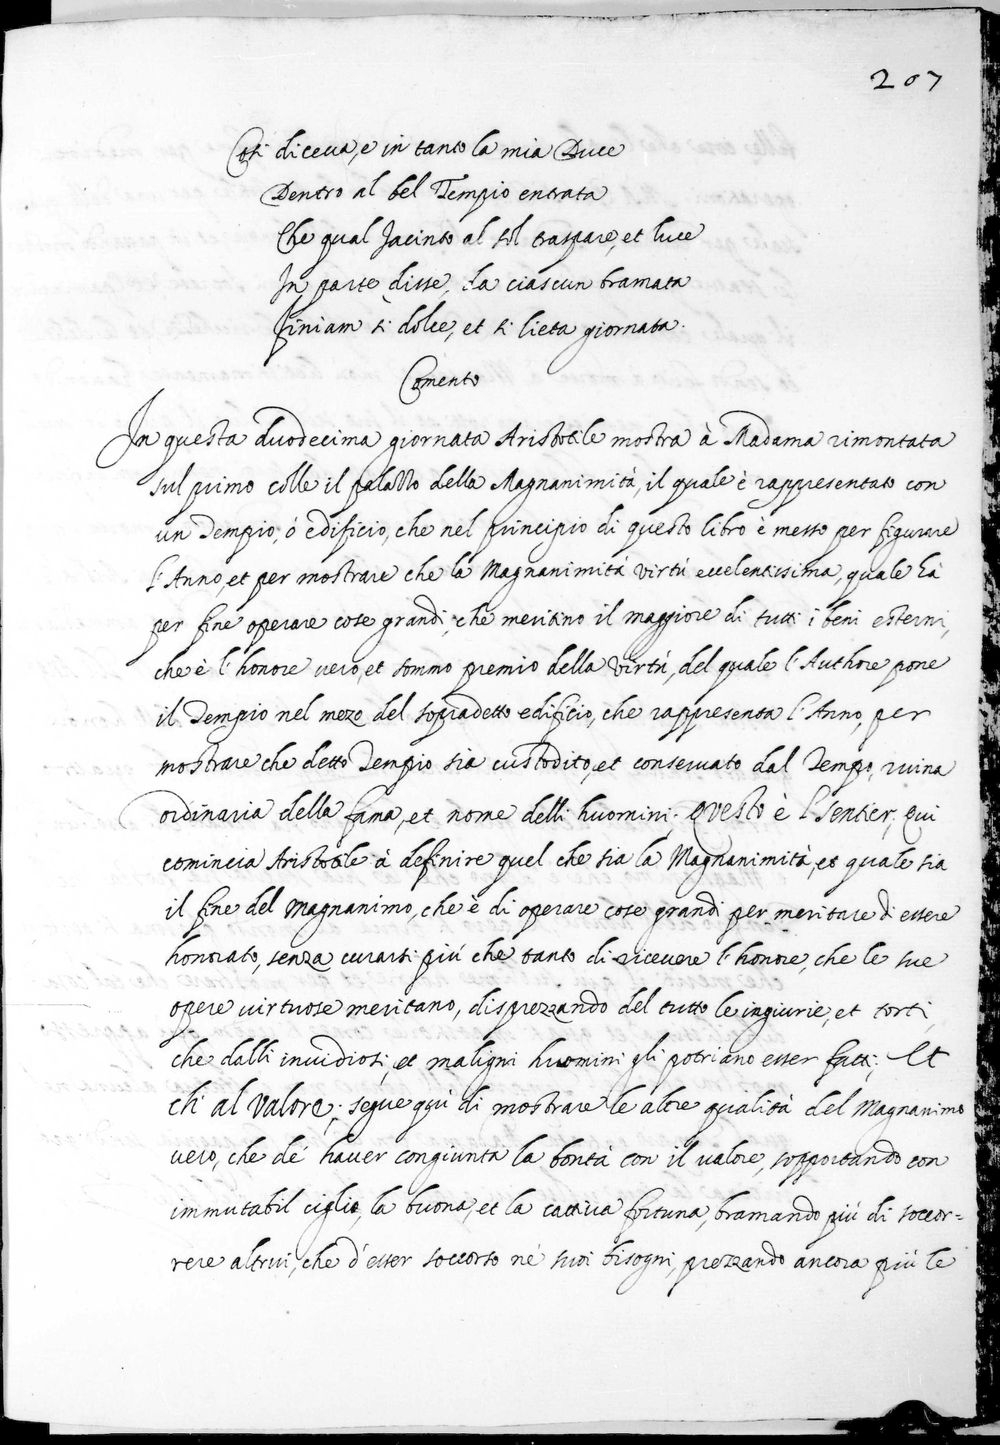 207
Così diceua, e in tanto la mia Duce
Dentro al bel Tempio entrata
Che qual Jacinto al sol traspare, et luce
In parte disse, da ciascun bramata
Finiam sì dolce, et sì lieta giornata.
Comento
In questa duodecima giornata Aristotile mostra à Madama rimontata
sul primo colle il palazzo della Magnanimità, il quale è rappresentato con
un Tempio, ó edificio, che nel principio di questo libro è messo per figurare
l'Anno, et per mostrare che la Magnanimità virtú eccelentissima, quale hà
per fine operare cose grandi, che meritino il maggiore di tutti i beni esterni,
che è l'honore vero, et sommo premio della virtú, del quale l'Authore pone
il Tempio nel mezo del sopradetto edificio, che rappresenta l'Anno, per
mostrare che detto Tempio sia custodito, et conseruato dal Tempo, ruina
ordinaria della fama, et nome delli huomini. Questo è l'sentier, Qui
comincia Aristotile à definire quel che sia la Magnanimità, et quale sia
il fine del Magnanimo, che è di operare cose grandi per meritare di essere
honorato, senza curarsi piú che tanto di riceuere l'honore, che le sue
opere virtuose meritano, disprezzando del tutto le ingiurie, et torti,
che dalli inuidiosi, et maligni huomini gli potriano esser fatti; Et
chi al valore; segue quì di mostrare le altre qualità del Magnanimo
vero, che dé hauer congiunta la bontà con il valore, sopportando con
immutabil ciglio, la buona, et la cattiua fortuna, bramando piú di soccor=
rere altrui, che d'esser soccorso né suoi bisogni, prezzando ancora piú le